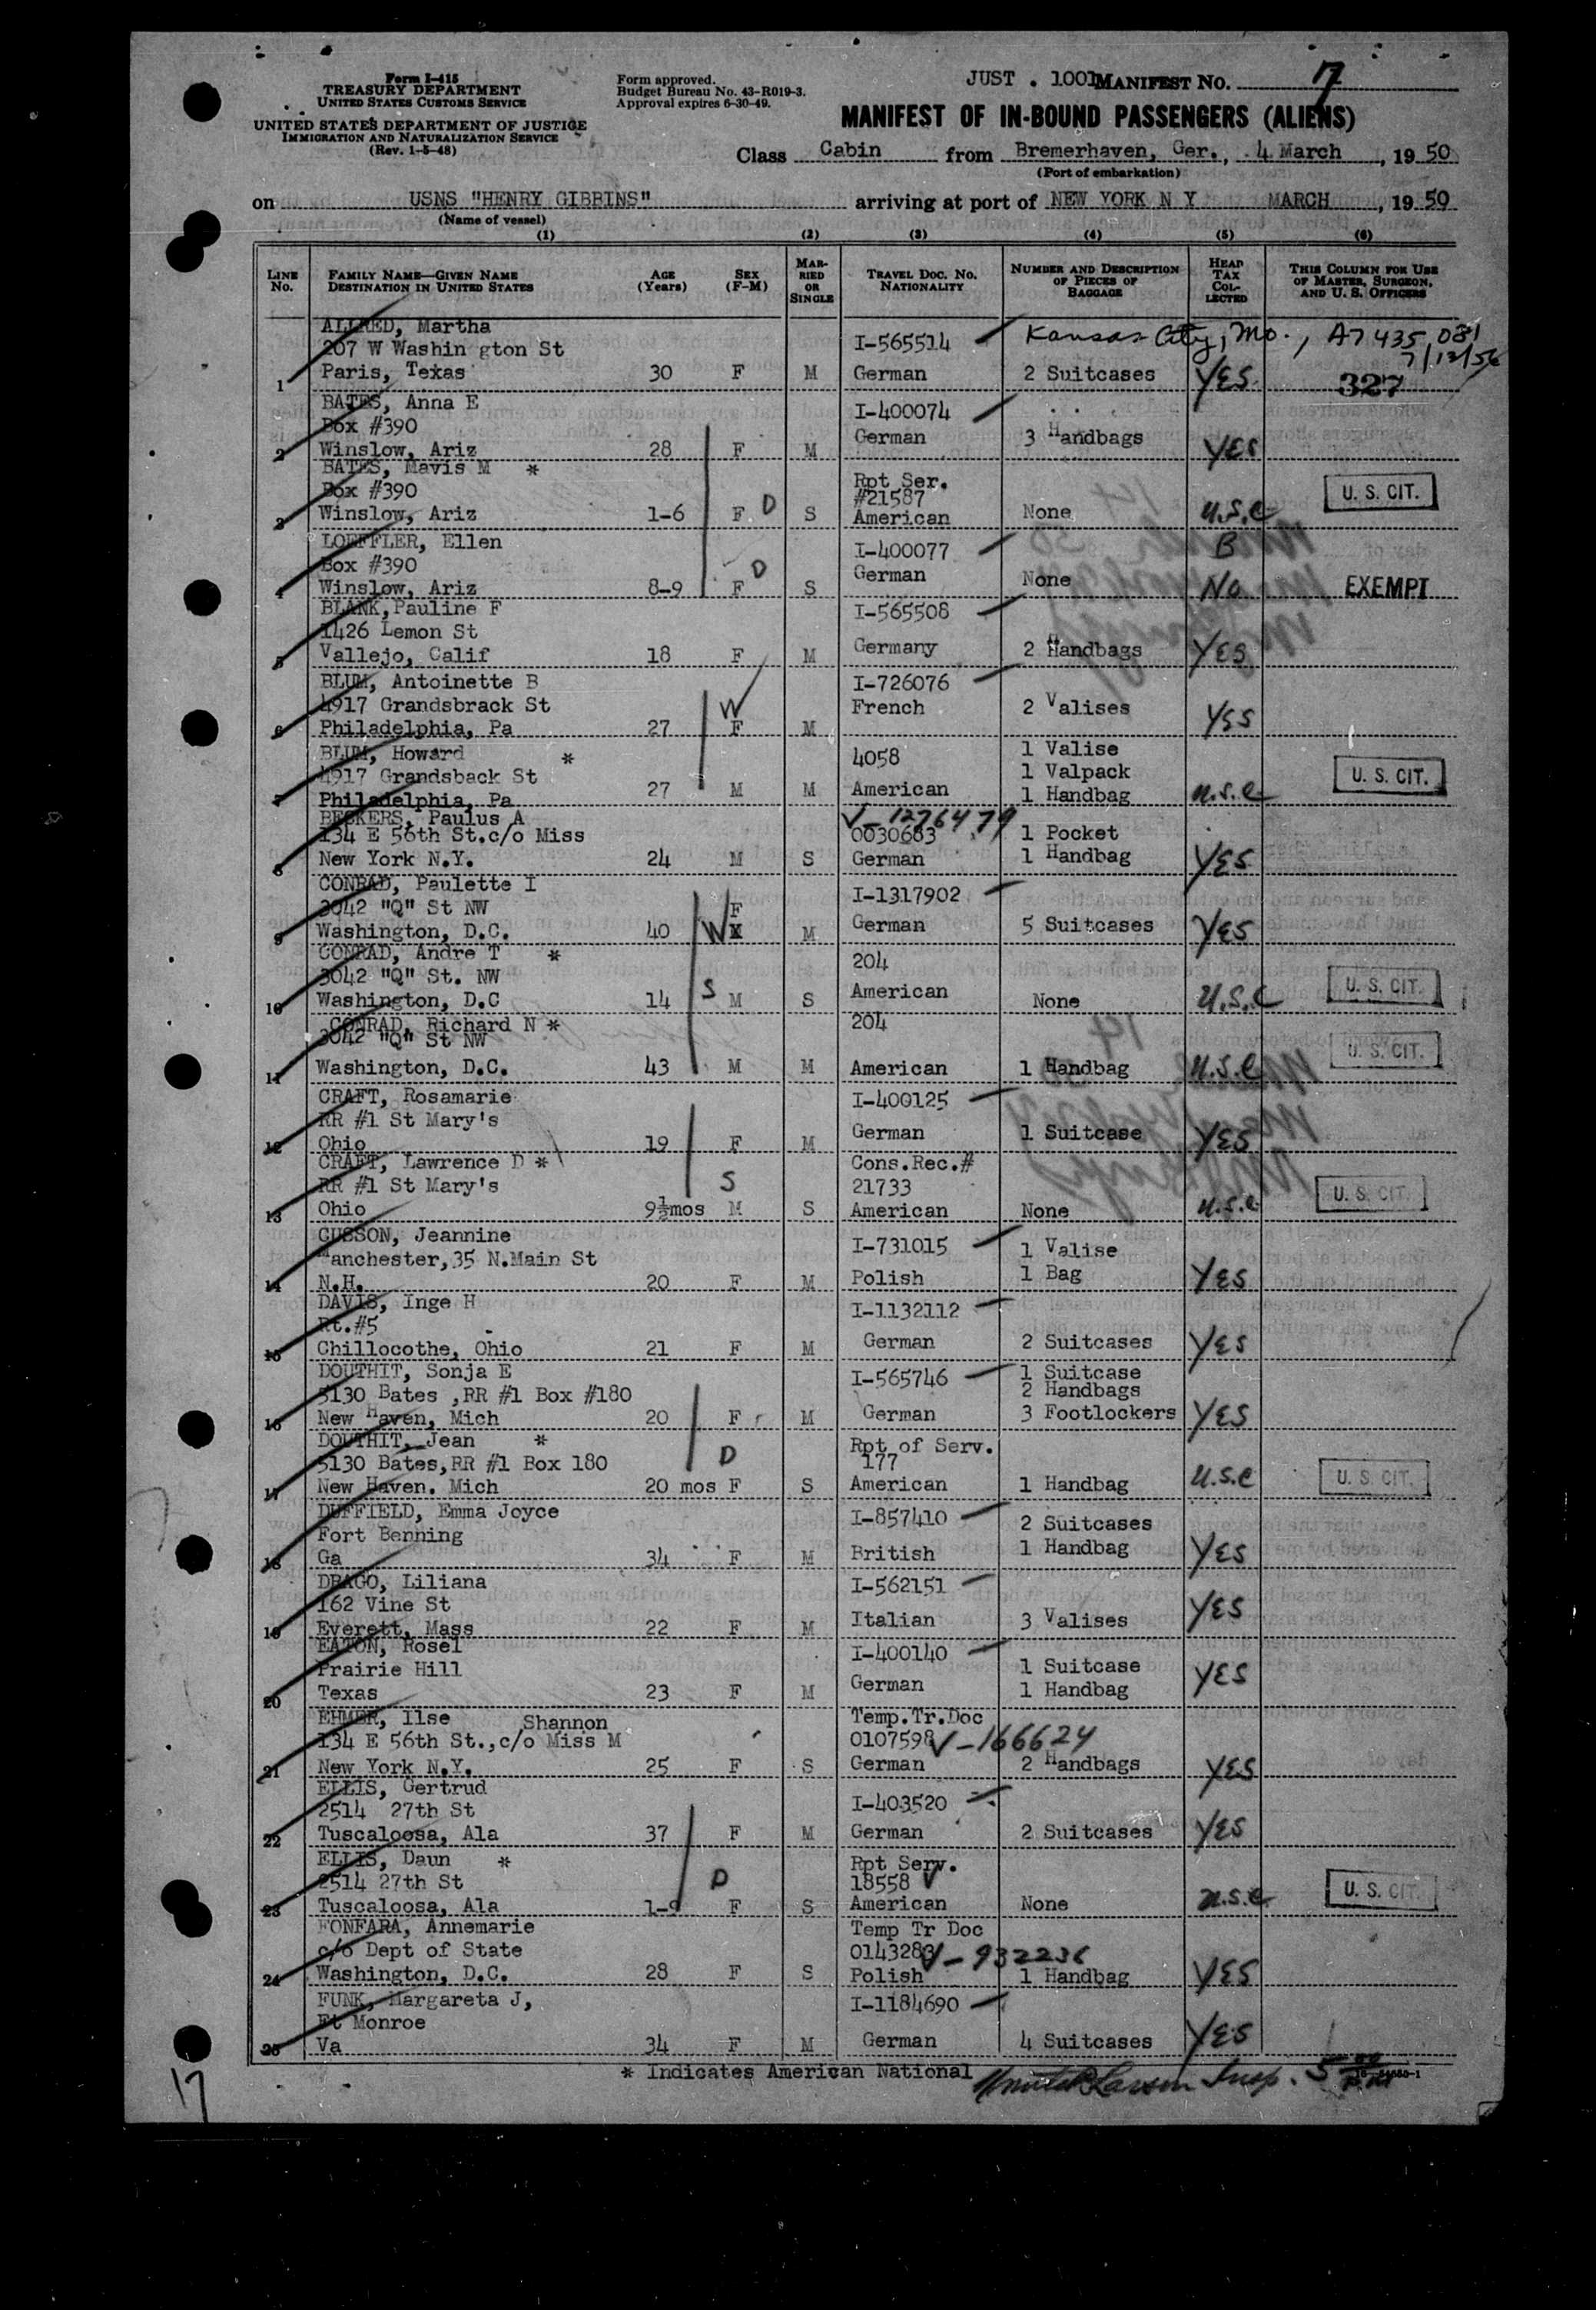 Form I-415
TREASURY DEPARTMENT
UNITED STATES CUSTOMS SERVICE
UNITED STATES DEPARTMENT OF JUSTICE
IMMIGRATION AND NATURALIZATION SERVICE
(Rev. 1-5-48)
Form approved.
Budget Bureau No. 43-R019-3.
Approval expires 6-30-49.
JUST . 1001 MANIFEST NO. 17
MANIFEST OF IN-BOUND PASSENGERS (ALIENS)
Class Cabin from Bremerhaven, Ger., 4 March, 19 50
(Port of embarkation)
on USNS "HENRY GIBBINS" arriving at port of NEW YORK N Y MARCH, 19 50
(Name of vessel)
(1) (2) (3) (4) (5) (6)
LINE No. FAMILY NAME—GIVEN NAME DESTINATION IN UNITED STATES AGE (Years) SEX (F-M) MARRIED OR SINGLE TRAVEL DOC. NO. NATIONALITY NUMBER AND DESCRIPTION OF PIECES OF BAGGAGE HEAD TAX COLLECTED THIS COLUMN FOR USE OF MASTER, SURGEON, AND U. S. OFFICERS
ALLRED, Martha
207 W Washin gton St I-565514 Kansas City, Mo., A7 435 031
7/12/56
1 Paris, Texas 30 F M German 2 Suitcases YES 327
BATES, Anna E I-400074
Box #390 German 3 Handbags
2 Winslow, Ariz 28 F M YES
BATES, Mavis M * Rpt Ser.
Box #390 #21587 U. S. CIT.
3 Winslow, Ariz 1-6 F D S American None U.S.C
LOEFFLER, Ellen I-400077 B
Box #390 D German
4 Winslow, Ariz 8-9 F S None No EXEMPT
BLANK, Pauline F I-565508
1426 Lemon St
5 Vallejo, Calif 18 F M Germany 2 Handbags YES
BLUM, Antoinette B I-726076
4917 Grandsbrack St W French 2 Valises
6 Philadelphia, Pa 27 F M YES
BLUM, Howard * 4058 1 Valise
4917 Grandsback St 1 Valpack U. S. CIT.
7 Philadelphia, Pa 27 M M American 1 Handbag U.S.C
BECKERS, Paulus A V-1276479
134 E 56th St.c/o Miss 0030683 1 Pocket
8 New York N.Y. 24 M S German 1 Handbag YES
CONRAD, Paulette I I-1317902
3042 "Q" St NW F
9 Washington, D.C. 40 W M German 5 Suitcases YES
CONRAD, Andre T * 204
3042 "Q" St. NW S American U. S. CIT.
10 Washington, D.C 14 M S None U.S.C
CONRAD, Richard N * 204
3042 "Q" St NW U. S. CIT.
11 Washington, D.C. 43 M M American 1 Handbag U.S.C
CRAFT, Rosamarie I-400125
RR #1 St Mary's
12 Ohio 19 F M German 1 Suitcase YES
CRAFT, Lawrence D * Cons.Rec.#
RR #1 St Mary's S 21733 U. S. CIT.
13 Ohio 9½mos M S American None U.S.C
CUSSON, Jeannine I-731015 1 Valise
Manchester,35 N.Main St
14 N.H. 20 F M Polish 1 Bag YES
DAVIS, Inge H I-1132112
Rt.#5
15 Chillocothe, Ohio 21 F M German 2 Suitcases YES
DOUTHIT, Sonja E I-565746 1 Suitcase
5130 Bates ,RR #1 Box #180 2 Handbags
16 New Haven, Mich 20 F M German 3 Footlockers YES
DOUTHIT, Jean * Rpt of Serv.
5130 Bates,RR #1 Box 180 D 177 U. S. CIT.
17 New Haven. Mich 20 mos F S American 1 Handbag U.S.C
DUFFIELD, Emma Joyce I-857410 2 Suitcases
Fort Benning
18 Ga 34 F M British 1 Handbag YES
DRAGO, Liliana I-562151
162 Vine St
19 Everett, Mass 22 F M Italian 3 Valises YES
EATON, Rosel I-400140
Prairie Hill 1 Suitcase
20 Texas 23 F M German 1 Handbag YES
EHMER, Ilse Shannon Temp.Tr.Doc
134 E 56th St.,c/o Miss M 0107598 V-166624
21 New York N.Y. 25 F S German 2 Handbags YES
ELLIS, Gertrud
2514 27th St I-403520
22 Tuscaloosa, Ala 37 F M German 2 Suitcases YES
ELLIS, Daun * Rpt Serv.
2514 27th St D 18558 U. S. CIT.
23 Tuscaloosa, Ala 1-9 F S American None U.S.C
FONFARA, Annemarie Temp Tr Doc
c/o Dept of State 0143283 V-932236
24 Washington, D.C. 28 F S Polish 1 Handbag YES
FUNK, Margareta J, I-1184690
Ft Monroe
25 Va 34 F M German 4 Suitcases YES
* Indicates American National Larson Insp.
17